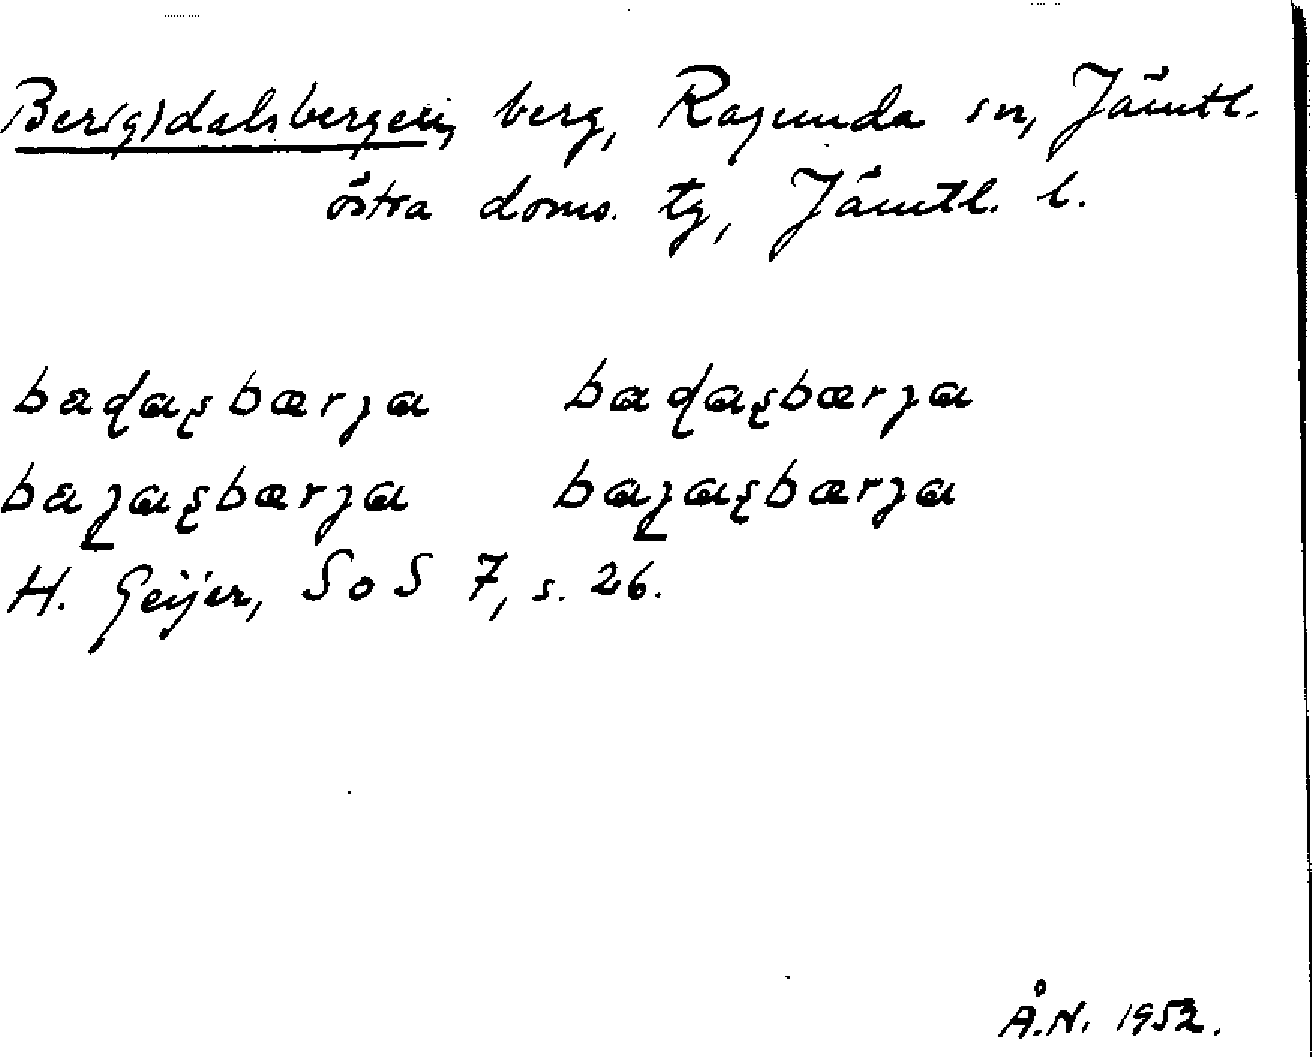 Ber(g)dalsbergen, berg, Ragunda sn, Jämtl.
östra doms. tg, Jämtl. l.
baɖaʂbærja baɖaʂbærja
bajaʂbærja bajaʂbærja
H. Geijer, SoS 7, s. 26.
Å.N. 1952.